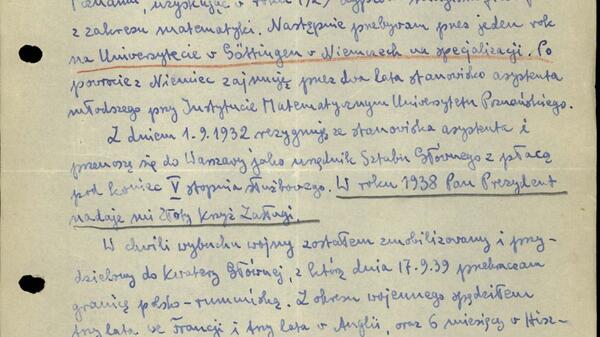 Poznaniu, uzyskując w roku 1929
z zakresu matematyki. Następnie przebywam przez jeden rok
na Uniwersytecie w Göttingen w Niemczech na specjalizacji. Po
powrocie z Niemiec zajmuję przez dwa lata stanowisko asystenta
młodszego przy Instytucie Matematycznym Uniwersytetu Poznańskiego.
Z dniem 1.9.1932 rezygnuję ze stanowiska asystenta i
przenoszę się do Warszawy jako urzędnik Sztabu Głównego z płacą
pod koniec V stopnia służbowego. W roku 1938 Pan Prezydent
nadaje mi Złoty Krzyż Zasługi.
W chwili wybuchu wojny zostałem zmobilizowany i przy-
dzielony do Kwatery Głównej, z którą dnia 17.9.39 przekraczam
granicę polsko-rumuńską. Z okresu wojennego spędziłem
trzy lata we Francji i trzy lata w Anglii, oraz 6 miesięcy w Hisz-